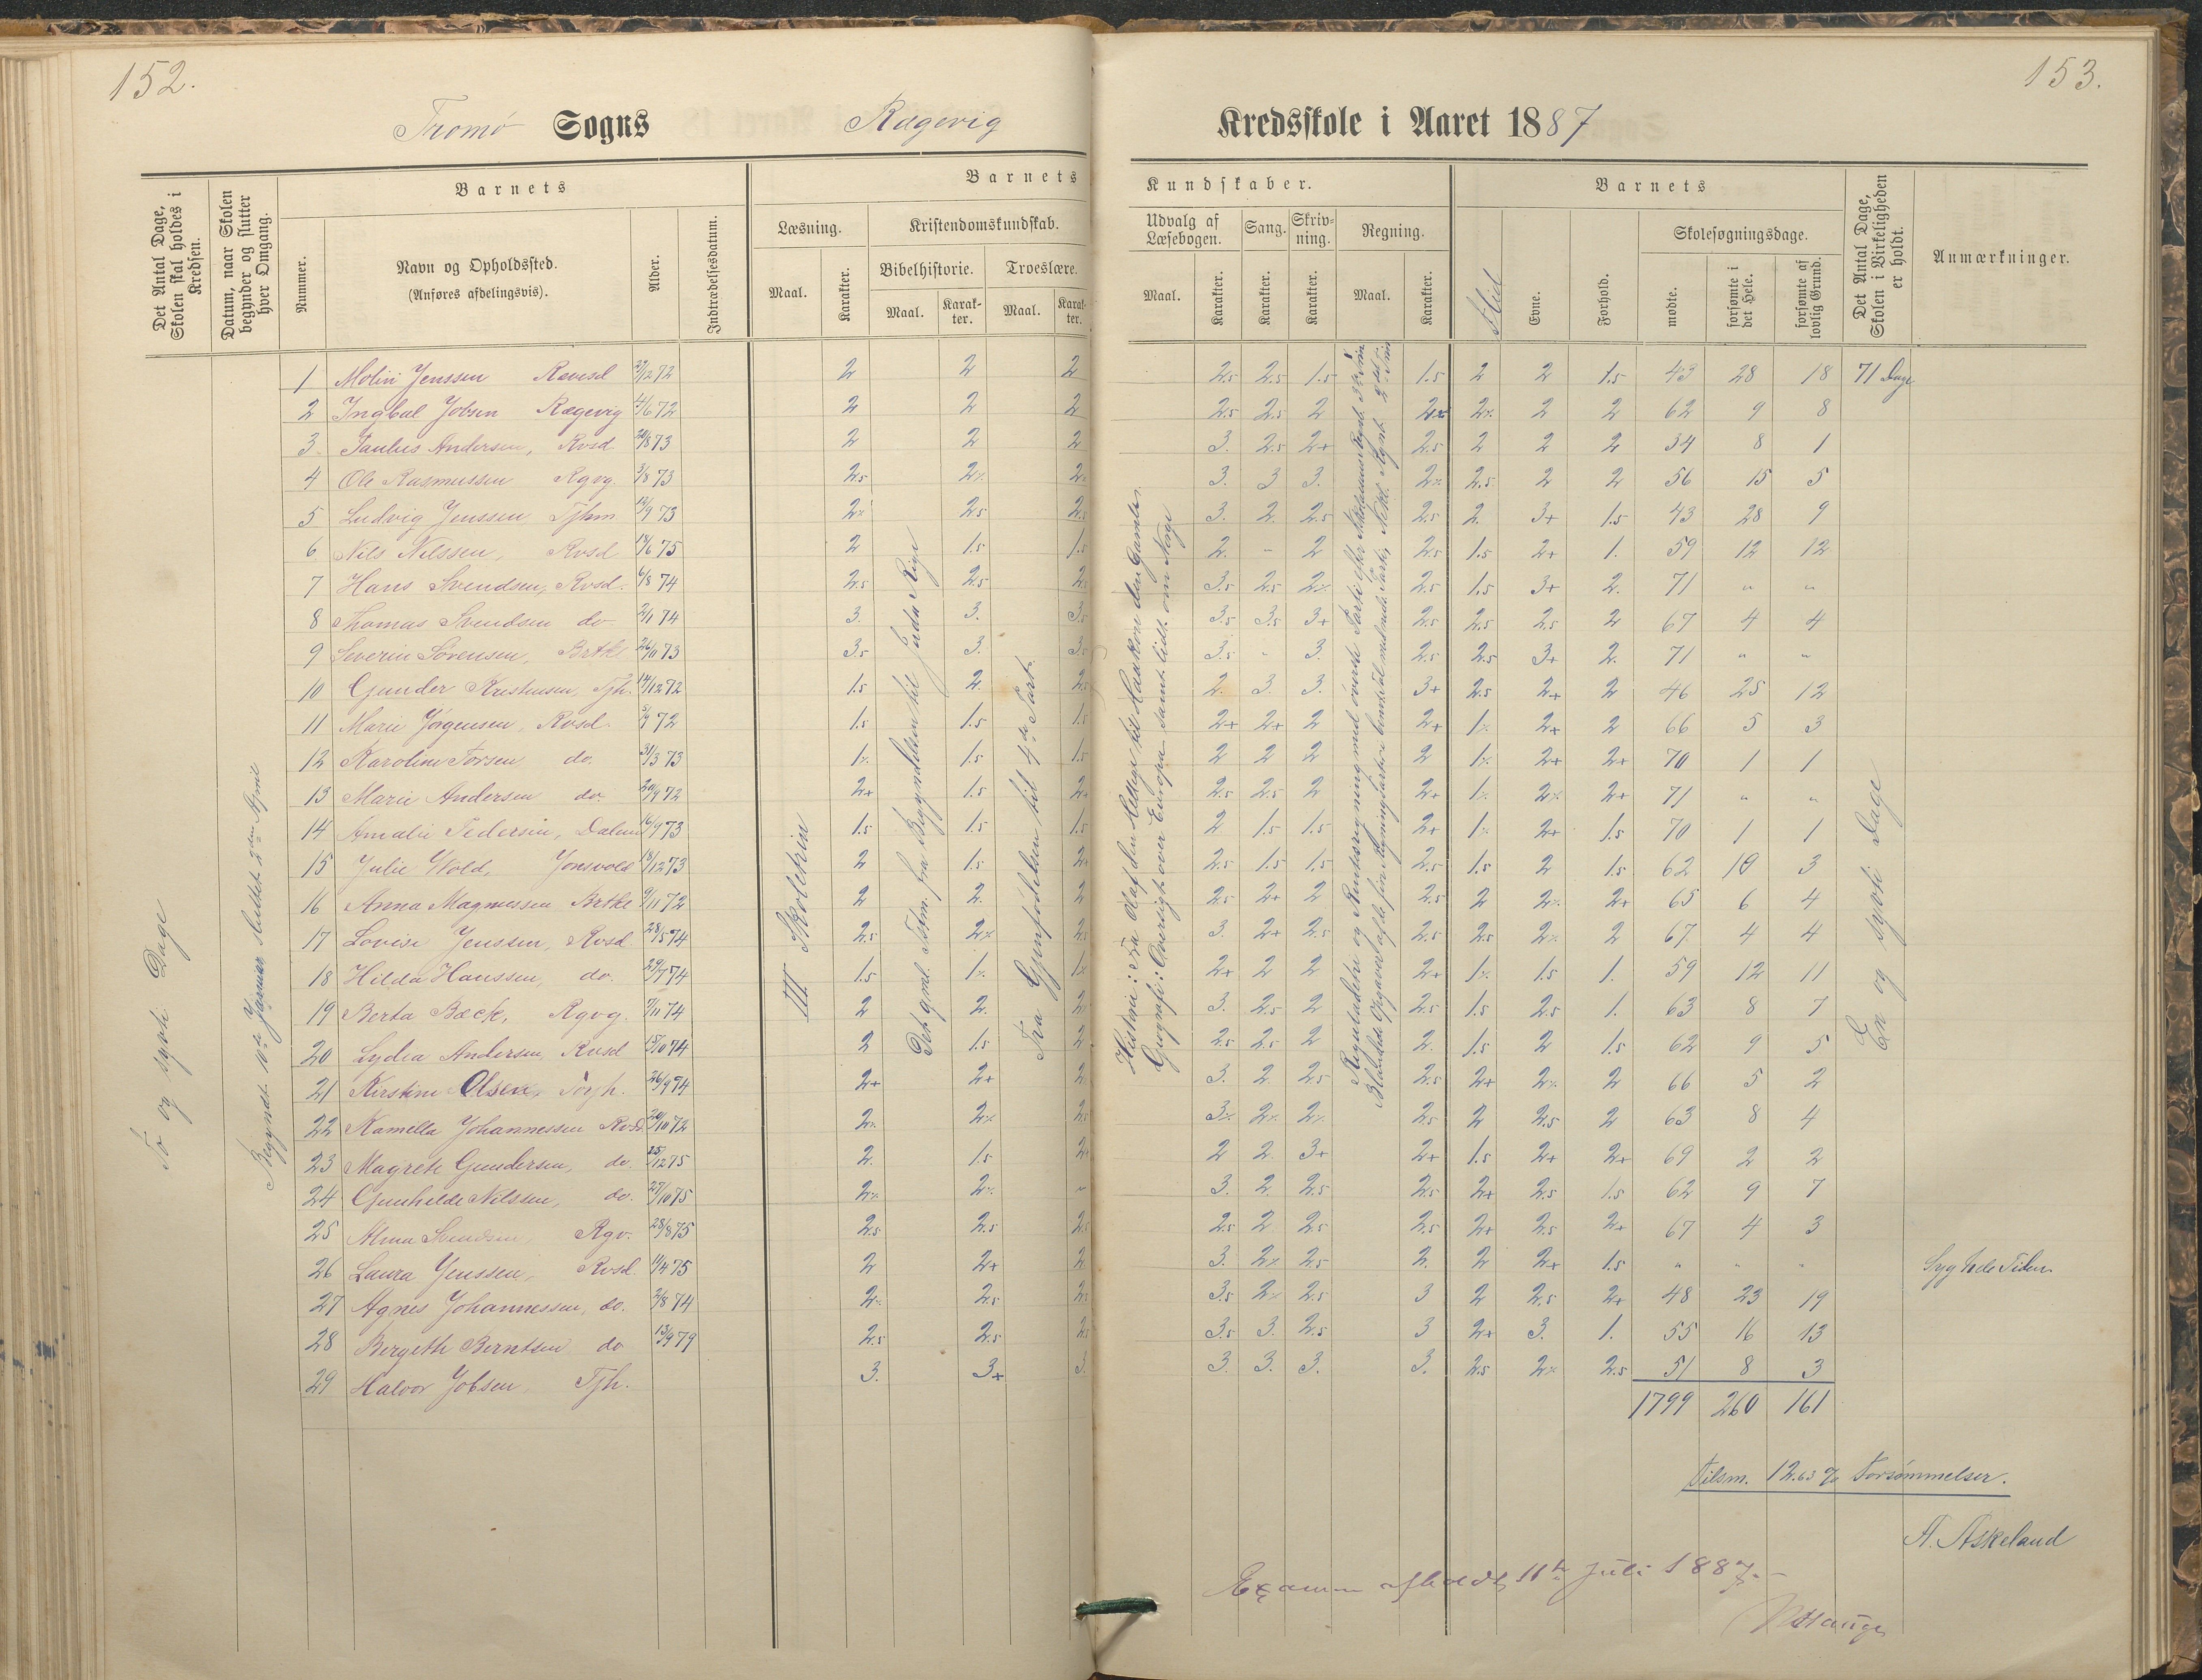 152.
153.
Tromø Sogns Rægevig Kredsskole i Aaret 1887
Det Antal Dage, Skolen skal holdes i Kredsen.
Datum, naar Skolen begynder og slutter hver Omgang.
Barnets
Nummer.
Navn og Opholdssted.
(Anføres afdelingsvis).
Alder.
Indtrædelsesdatum.
Barnets Kundskaber.
Læsning.
Maal. Karakter.
Kristendomskundskab.
Bibelhistorie. Troeslære.
Maal. Karakter. Maal. Karakter.
Udvalg af Læsebogen. Sang. Skrivning. Regning.
Maal. Karakter. Karakter. Karakter. Maal. Karakter.
Barnets
Flid Evne. Forhold.
Skolesøgningsdage.
mødte. forsømte i det Hele. forsømte af lovlig Grund.
Det Antal Dage, Skolen i Virkeligheden er holdt.
Anmærkninger.
To og syvti Dage
Begyndt 10de Januar sluttet 2den April
III Skoletrin
Det gml. Testm. fra Begyndelsen til Juda Rige
Fra Gjenfødelsen til 4de Part.
Historie: Fra Olaf den Hellige til Haakon den Gamle.
Geografi: Oversigt over Europa samt lidt om Norge
En og syvti Dage
1 Molin Jenssen Rævesd 72 2 2 2 2.5 2.5 1.5 1.5 2 2 1.5 43 28 18 71 Dage
2 Ingbal Jobsen Rægevig 4/6 72 2 2 2 2.5 2.5 2 2 2 2 62 9 8
3 Paulus Andersen, Rvsd 73 2 2 2 3. 2.5 2+ 2.5 2 2 2 34 8 1
4 Ole Rasmussen Rgvg. 3/8 73 2.5 3. 3 3. 2.5 2 2 56 15 5
5 Ludvig Jenssen Tjhm 12/9 73 2.5 2.5 3. 2. 2.5 2.5 2. 3+ 1.5 43 28 9
6 Nils Nilssen, Rvsd 14/6 75 2 1.5 1.5 2. - 2 2.5 1.5 2+ 1. 59 12 12
7 Hans Svendsen, Rvsd. 6/8 74 2.5 2.5 2.5 3.5 2.5 2.5 1.5 3+ 2. 71 " "
8 Thomas Svendsen do. 2/1 74 3. 3. 3.5 3.5 3.5 3+ 2.5 2.5 2.5 2 67 4 4
9 Severin Sørensen, Brtke 26/11 73 3.5 3. 3.5 3.5 " 3. 2.5 2.5 3+ 2. 71 " "
10 Gunder Kristensen, Tjh. 14/12 72 1.5 2. 2.5 2. 3. 3. 3+ 2.5 2+ 2 46 25 12
11 Marie Jørgensen, Rvsd. 72 1.5 1.5 1.5 2+ 2+ 2 2+ 2+ 2 66 5 3
12 Karoline Torsen do. 31/3 73 1.5 1.5 2 2 2 2 2+ 2+ 70 1 1
13 Marie Andersen do. 20/9 72 2+ 1.5 2+ 2.5 2.5 2 2+ 2+ 71 " "
14 Amalie Pedersen, Dalen 16/9 73 1.5 1.5 1.5 2 1.5 1.5 2+ 2+ 1.5 70 1 1
15 Julie Wold, Jonsvold 18/12 73 2 1.5 2+ 2.5 1.5 1.5 2.5 1.5 2 1.5 62 10 3
16 Anna Magnussen Brtke 9/11 72 2 2. 2 2.5 2+ 2 2.5 2 2+ 65 6 4
17 Lovise Jenssen, Rvsd. 28/5 74 2.5 2.5 3. 2+ 2.5 2.5 2.5 2 67 4 4
18 Hilda Hanssen, do. 29/7 74 1.5 2+ 2 2 2+ 1.5 1. 59 12 11
19 Berta Bæck, Rgvg. 7/11 74 2 2. 2 3. 2.5 2 2.5 1.5 2.5 1. 63 8 7
20 Lydia Andersen, Rvsd 15/10 74 2 1.5 2 2.5 2.5 2 2. 1.5 2 1.5 62 9 5
21 Kirstine Olsen, Torjh. 26/9 74 2+ 2+ 3. 2 2.5 2.5 2+ 2 66 5 2
22 Kamella Johannessen Rvsd 20/10 72 2.5 2.5 2 2.5 2 63 8 4
23 Magrete Gundersen, do. 25/12 75 2. 1.5 2+ 2 2. 3+ 2+ 1.5 2+ 2+ 69 2 2
24 Gunhilde Nilssen, do. 27/10 75 " 3. 2 2.5 2.5 2+ 2.5 1.5 62 9 7
25 Alma Svendsen, Rgv. 28/8 75 2.5 2.5 2.5 2.5 2 2.5 2.5 2+ 2.5 2+ 67 4 3
26 Laura Jenssen, Rvsd. 75 2 2+ 2 3. 2.5 2. 2 2+ 1.5 " " " Syg hele Tiden
27 Agnes Johannessen, do. 2/8 74 2.5 2.5 3.5 2.5 3 2 2.5 2+ 48 23 19
28 Bergeth Berntsen do 13/9 79 2.5 2.5 2.5 3.5 3. 2.5 3 2+ 3. 1. 55 16 13
29 Halvor Jobsen Tjh. 3. 3+ 3. 3. 3. 3. 3. 2.5 2.5 51 8 3
1799 260 161
Tilsm. 12.63 % Forsømmelser.
A. Askeland
Examen afholdt 11te Juli 1887.
Hauge